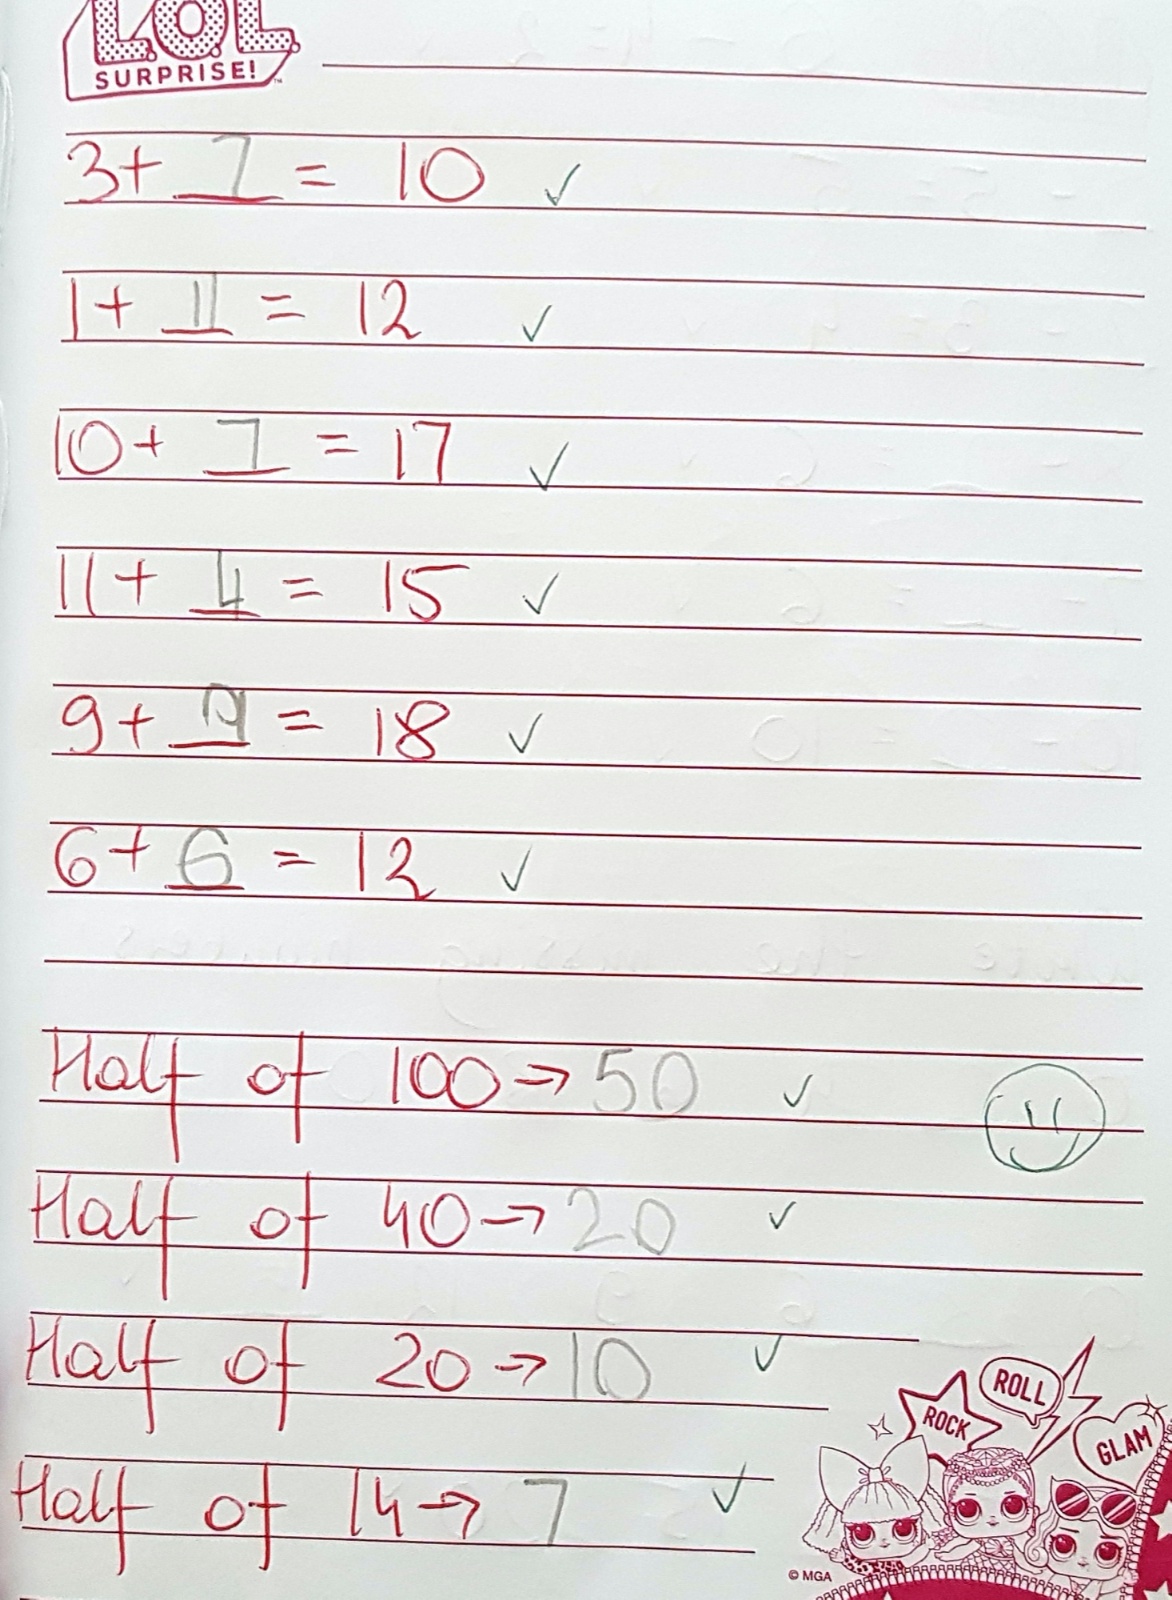 L.O.L.
SURPRISE!™
3 + 7 = 10 ✓
1 + 11 = 12 ✓
10 + 7 = 17 ✓
11 + 4 = 15 ✓
9 + 9 = 18 ✓
6 + 6 = 12 ✓
Half of 100 → 50 ✓
Half of 40 → 20 ✓
Half of 20 → 10 ✓
Half of 14 → 7 ✓
ROCK
ROLL
GLAM
© MGA